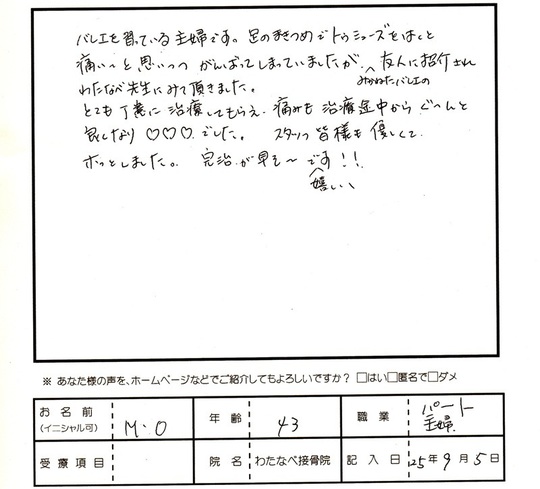 バレエを習っている主婦です。足のまきつめでトゥシューズをはくと
痛いっと思いつつ がんばってしまっていましたが、友人に紹介され
みかねたバレエの
わたなべ先生にみて頂きました。
とても丁寧に治療してもらえ、痛みも治療途中からぐ〜んと
良くなり ♡♡♡ でした。 スタッフ皆様も優しくて
ホッとしました。 完治が早も〜です!!
嬉しい
※ あなた様の声を、ホームページなどでご紹介してもよろしいですか? □はい□匿名で□ダメ
お名前
(イニシャル可) M・O 年齢 43 職業 パート
主婦
受療項目 院名 わたなべ接骨院 記入日 '25年9月5日